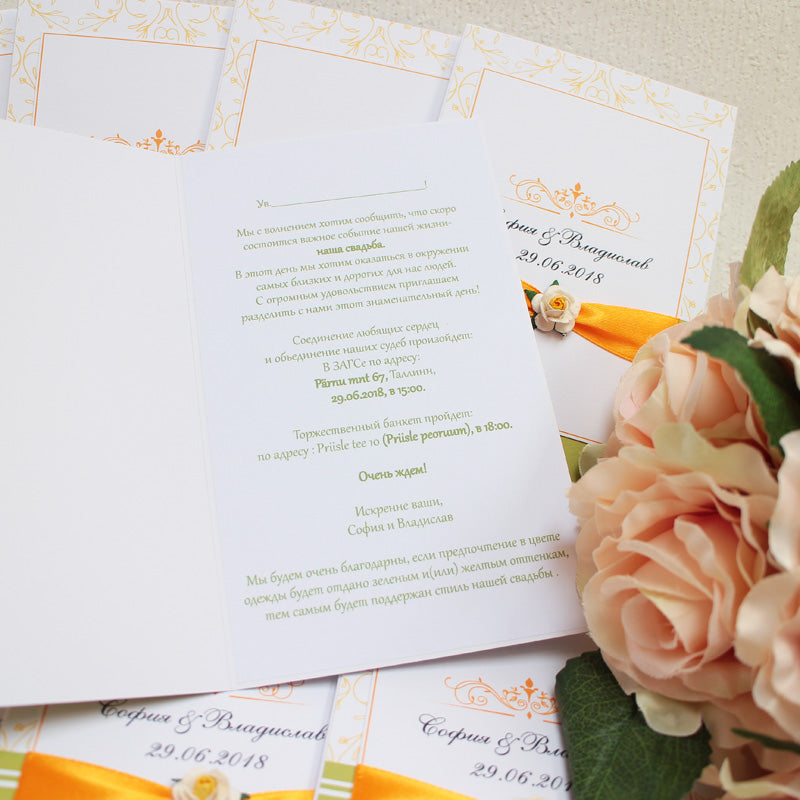 Ув.______________________________!
Мы с волнением хотим сообщить, что скоро
состоится важное событие нашей жизни-
наша свадьба.
В этот день мы хотим оказаться в окружении
самых близких и дорогих для нас людей.
С огромным удовольствием приглашаем
разделить с нами этот знаменательный день!
Соединение любящих сердец
и объединение наших судеб произойдет:
В ЗАГСе по адресу:
Pärnu mnt 67, Таллинн,
29.06.2018, в 15:00.
Торжественный банкет пройдет:
по адресу : Priisle tee 10 (Priisle peoruum), в 18:00.
Очень ждем!
Искренне ваши,
София и Владислав
Мы будем очень благодарны, если предпочтение в цвете
одежды будет отдано зеленым и(или) желтым оттенкам,
тем самым будет поддержан стиль нашей свадьбы .
София & Владислав
29.06.2018
София & Владислав
29.06.2018
София & Вла
29.06.201